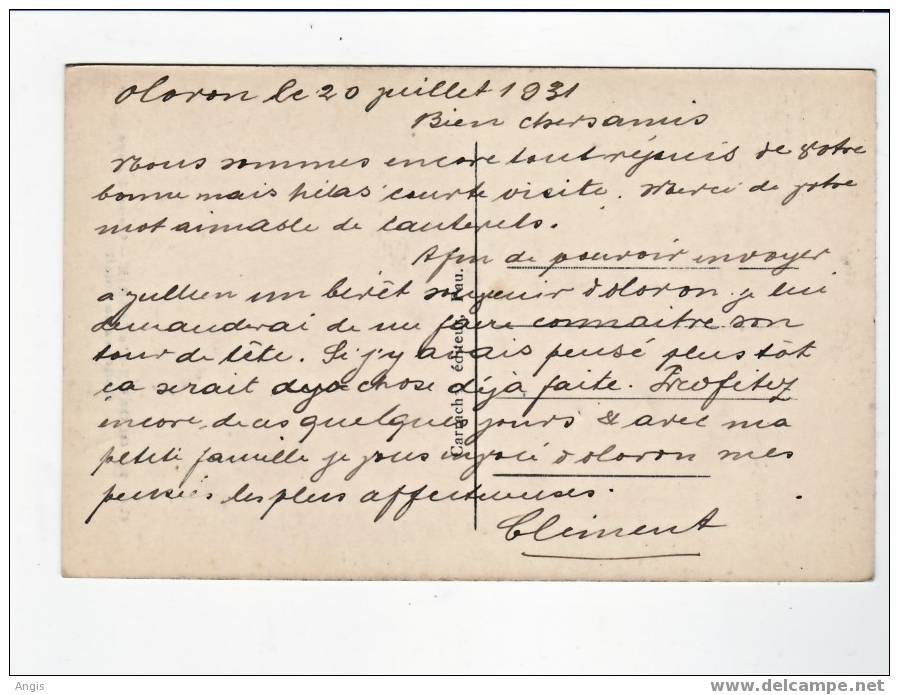 Oloron le 20 juillet 1931
Bien chers amis
Nous sommes encore tout réjouis de votre
bonne mais hélas courte visite. Merci de votre
mot aimable de Cauterets.
Afin de pouvoir envoyer
a Jullien un bérêt souvenir d'oloron je lui
demanderai de me faire connaitre son
tour de tête. Si j'y avais pensé plus tôt
ça serait deja chose déjà faite. Profitez
encore de ces quelques jours & avec ma
petite famille je vous envoie d'oloron mes
pensées les plus affectueuses.
Clément
Carrach éditeur, Pau.
Angis
www.delcampe.net